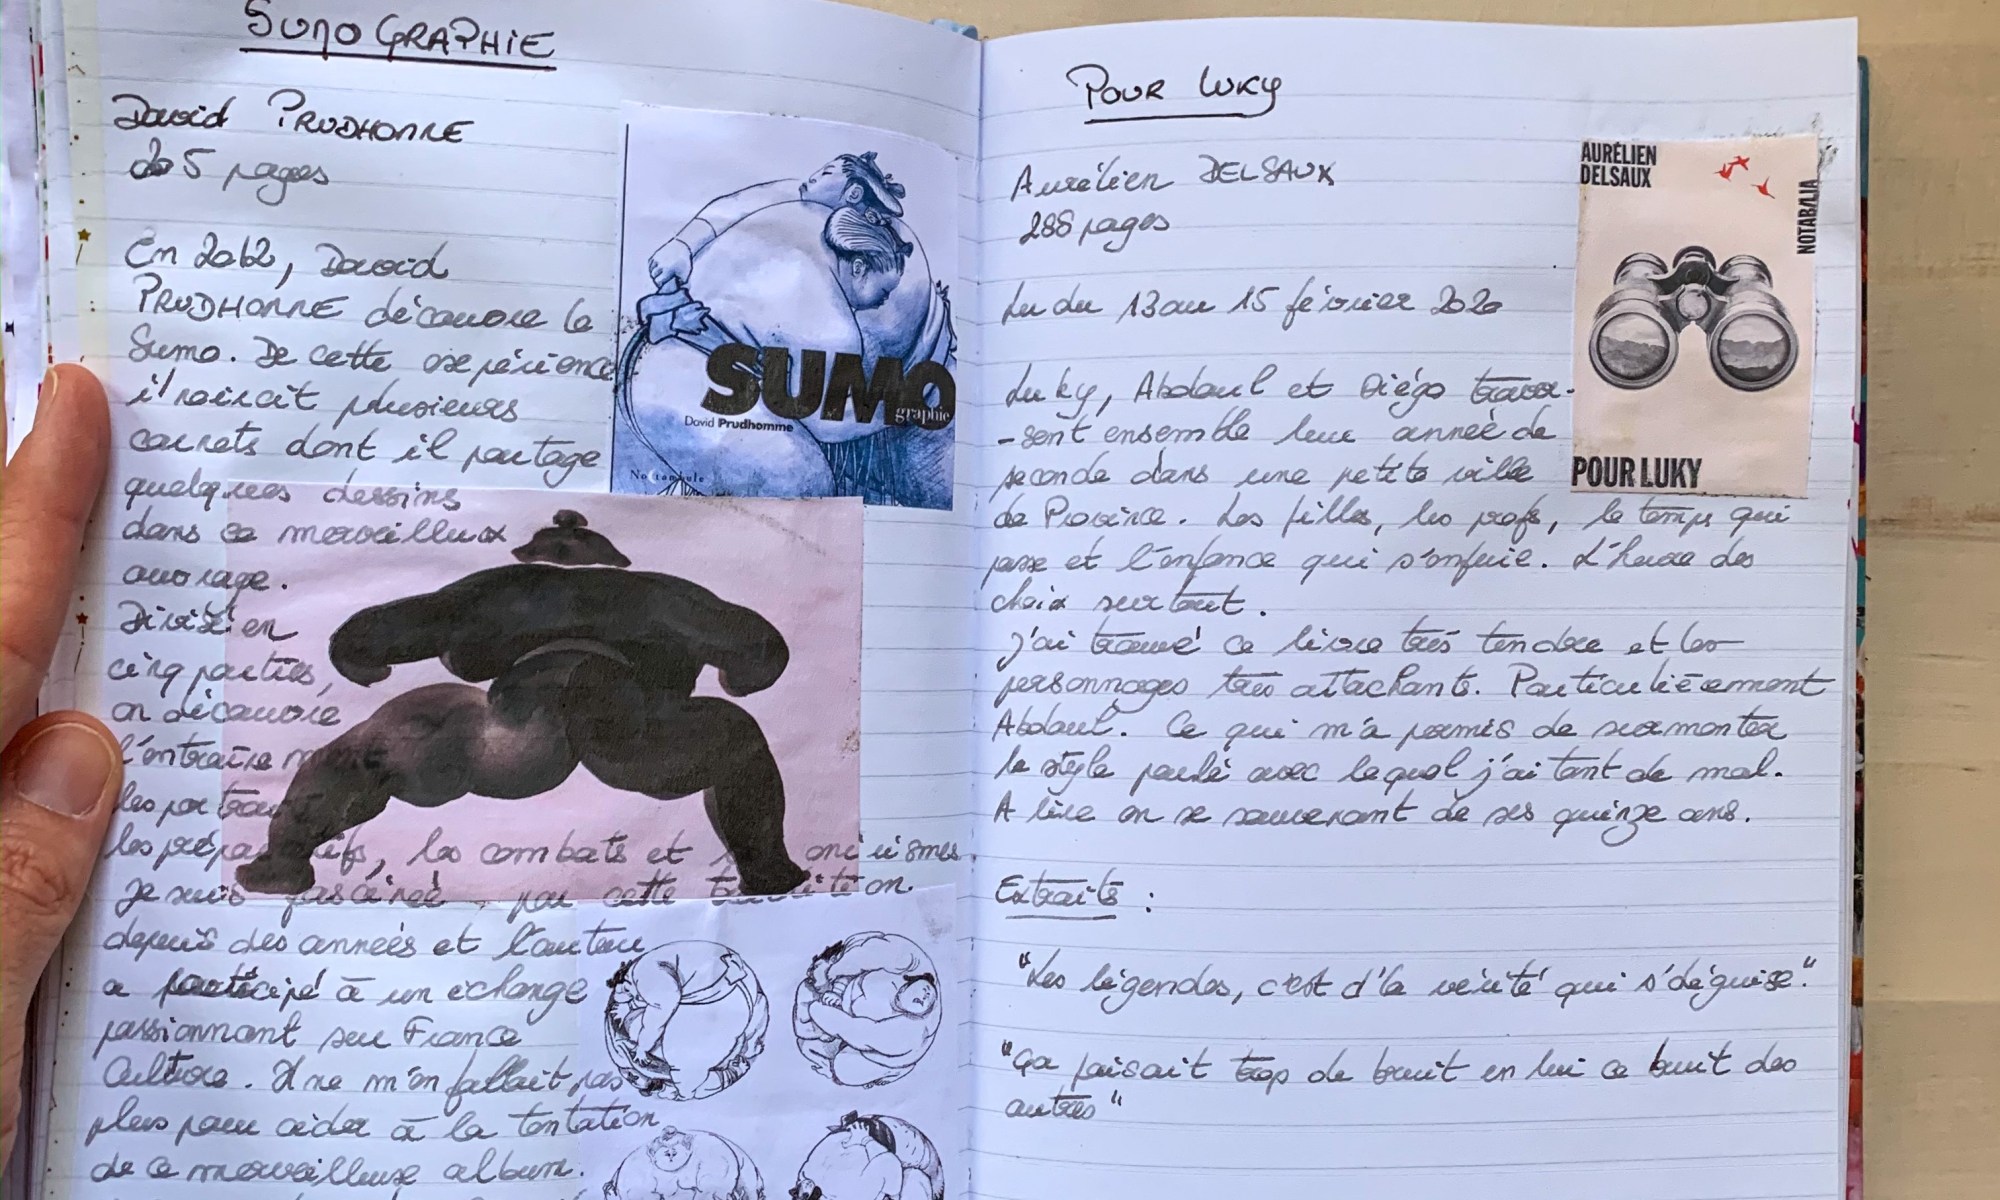 SUMO GRAPHIE
David PRUDHOMME
205 pages
En 2012, David
PRUDHOMME découvre le
Sumo. De cette expérience
il naîrait plusieurs
carnets dont il partage
quelques dessins
dans ce merveilleux
ouvrage.
Divisé en
cinq parties,
on découvre
l'entraînement,
les portraits
les préparatifs, les combats et
Je suis fascinée par cette tradition.
depuis des années et l'auteur
a participé à un échange
passionnant sur France
Culture. Il ne m'en fallait pas
plus pour céder à la tentation
de ce merveilleux album.
SUMO
graphie
David Prudhomme
Noctambule
POUR LUKY
Aurélien DELSAUX
288 pages
Lu du 13 au 15 février 2020
Luky, Abdoul et Diégo traver-
-sent ensemble leur année de
seconde dans une petite ville
de Province. Les filles, les profs, le temps qui
passe et l'enfance qui s'enfuie. L'heure des
choix surtout.
J'ai trouvé ce livre très tendre et les
personnages très attachants. Particulièrement
Abdoul. Ce qui m'a permis de surmonter
le style parlé avec lequel j'ai tant de mal.
A lire en se souvenant de ses quinze ans.
Extraits :
"Les légendes, c'est d'la vérité qui s'déguise."
"Ça faisait trop de bruit en lui ce bruit des
autres"
AURÉLIEN
DELSAUX
NOTABILIA
POUR LUKY